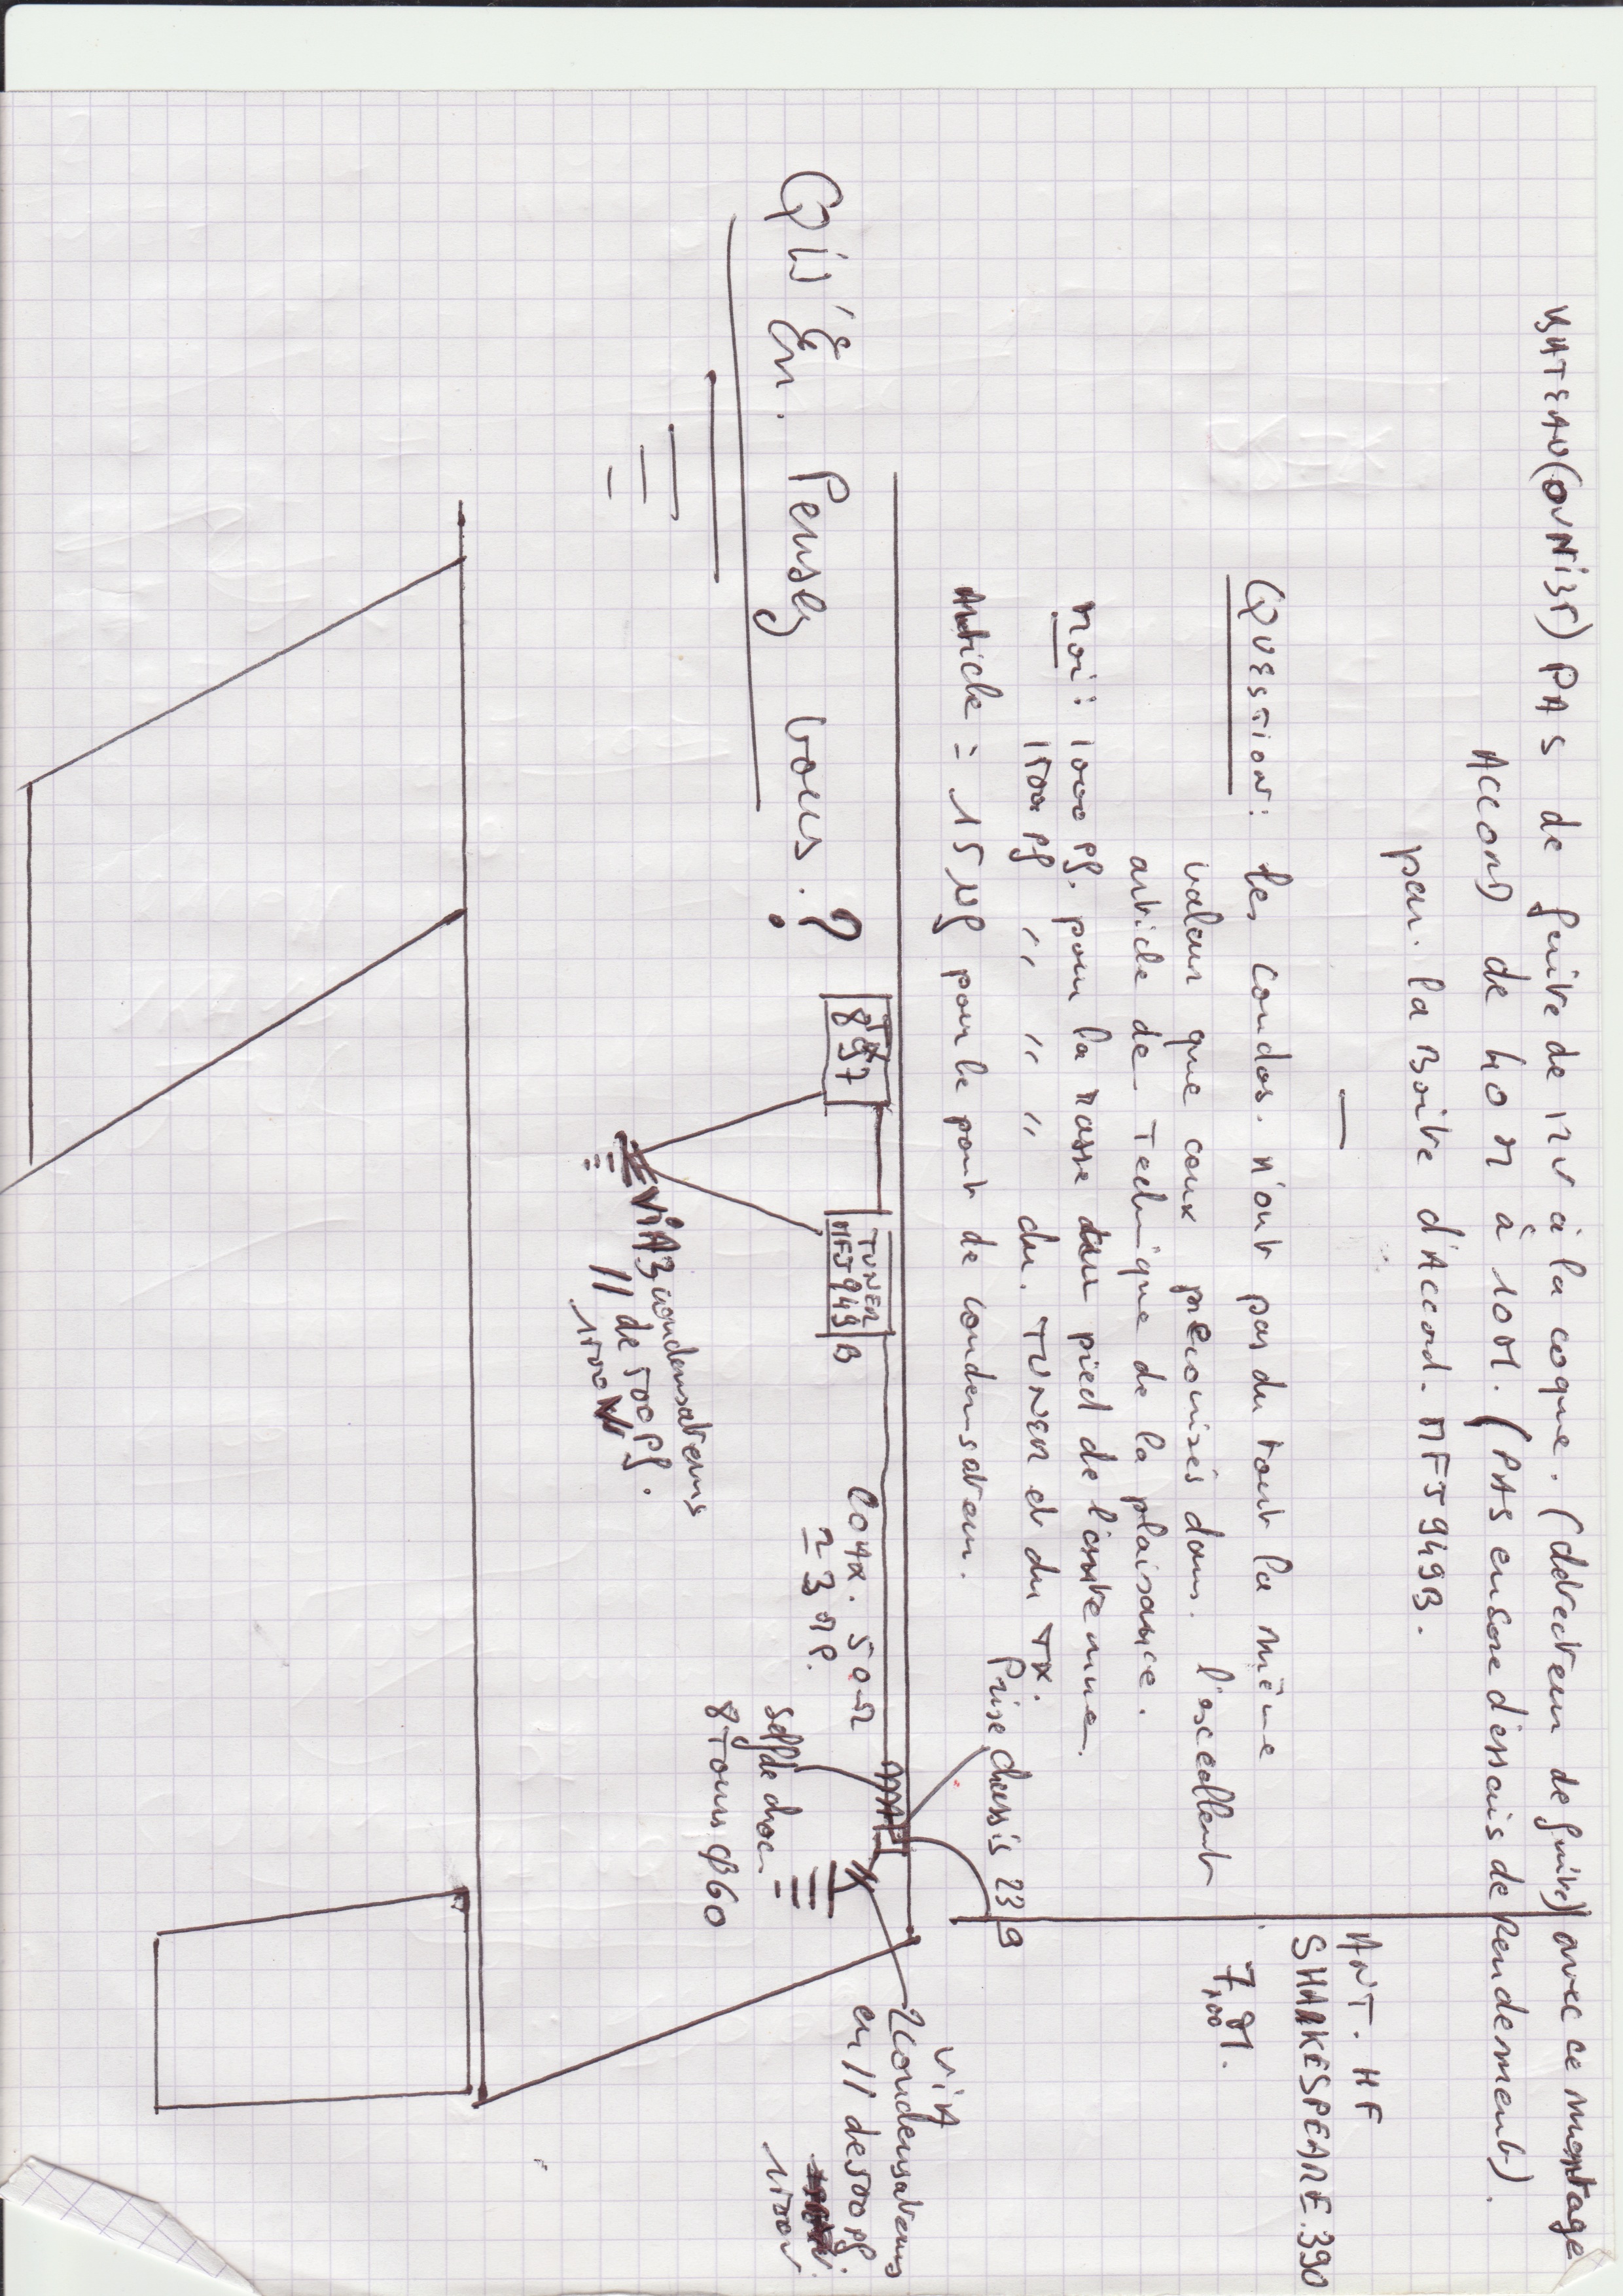 BATEAU (OVNI 31) PAS de fuite de 12V à la coque. (détecteur de fuite) avec ce montage
ACCORD de 40 M à 10M. (PAS encore d'éssais de Rendement).
par. la Boite d'Accord. MFJ 949B.
ANT. HF
SHAKESPEARE. 390
7,00 M.
QUESTION: les condos. n'ont pas du tout la même
valeur que ceux préconisés dans. l'excellent
article de Technique de la plaisance.
Moi: 1000 pf. pour la masse du pied de l'antenne.
1500 pf " " " du. TUNER et du TX.
Article = 15 nf pour le pont de condensateur.
Prise chassis 239
Qu'En. Pensez vous. ?
TX
897
TUNER
MFJ 949 B
COAX. 50 Ω
≃ 3 M.
Self de choc
8 Tours Φ 60
VIA
2 condensateurs
en // de 500 pf
1500V
VIA 3 condensateurs
// de 500 pf.
1500 V